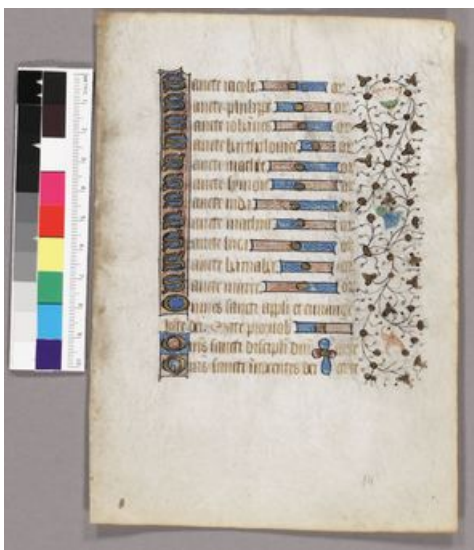 Sancte iacobe or
Sancte philippe or
Sancte iohānes or
Sancte bartholomee or
Sancte mathee or
Sancte symon or
Sancte iuda or
Sancte mathia or
Sancte luca or
Sancte barnaba or
Sancte marce or
Omnes sancti apłi et euuangel
Oms sancti discipli dni orate
Oms sancti innocentes dei orate